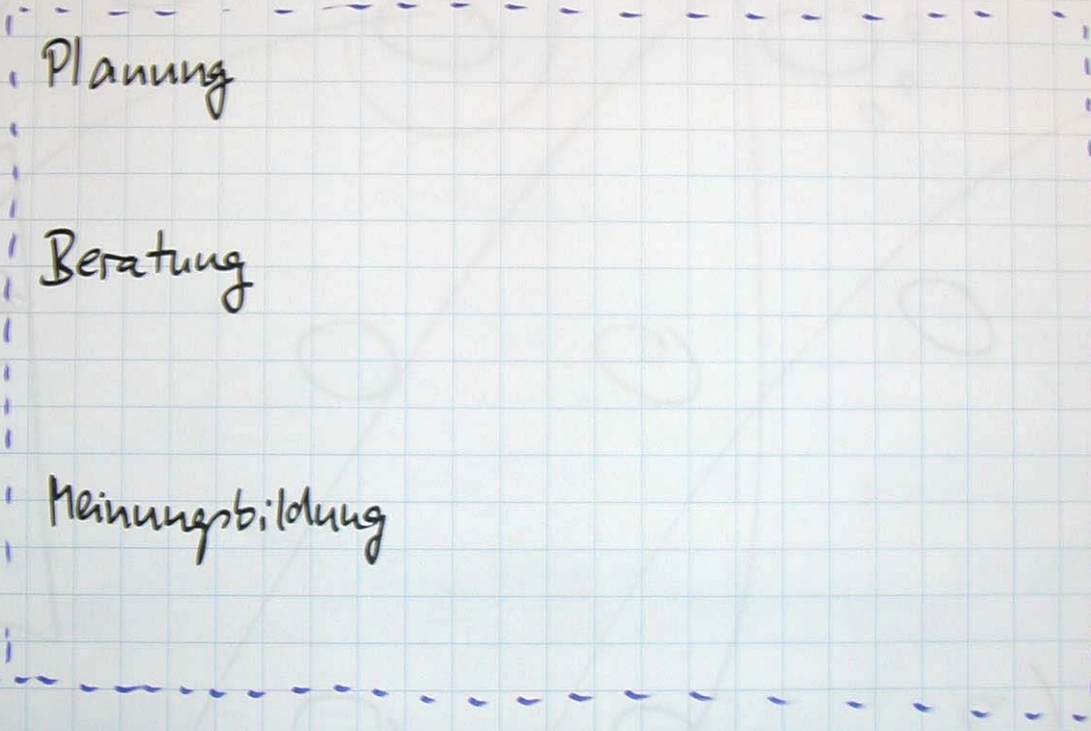 Planung
Beratung
Meinungsbildung